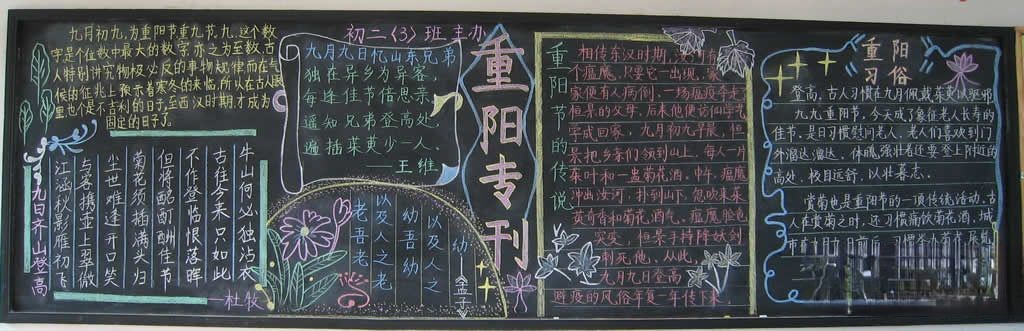 九月初九,为重阳节重九节,九,这个数
字是个位数中最大的数字,亦之为至数,古
人特别讲究物极必反的事物规律,而在气
候的征兆上,预示着寒冬的来临,所以在古人眼
里也个是不吉利的日子,至西汉时期,才成为
固定的日子了。
九日齐山登高
江涵秋影雁初飞
与客携壶上翠微
尘世难逢开口笑
菊花须插满头归
但将酩酊酬佳节
不作登临恨落晖
古往今来只如此
牛山何必独沾衣
—杜牧
初二〈3〉班 主办
九月九日忆山东兄弟
独在异乡为异客,
每逢佳节倍思亲。
遥知兄弟登高处,
遍插茱萸少一人。
——王维
老吾老
以及人之老
幼吾幼
以及人之
幼
孟子
重阳专刊
重阳节的传说
相传东汉时期,汝河有
个瘟魔,只要它一出现,家
家便有人病倒,一场瘟疫夺走
恒景的父母,后来他便访仙学艺
学成回家,九月初九早晨,恒
景把乡亲们领到山上,每人一片
茱叶和一盅菊花酒,中午,瘟魔
冲出汝河,扑到山下,忽吹来茱
萸奇香和菊花酒气,瘟魔脸色
突变,恒景手持降妖剑
刺死他、从此,
九月九日登高
避疫的风俗年复一年传下来.
重阳习俗
登高,古人习惯在九月佩戴茱萸以驱邪
九九重阳节,今天成了象征老人长寿的
佳节,是日习惯慰问老人,老人们喜欢到门
外溜达溜达、体魄强壮者还要登上附近的
高处、极目远舒,以壮暮志。
赏菊也是重阳节的一项传统活动,古
人在赏菊之时,还习惯痛饮菊花酒,城